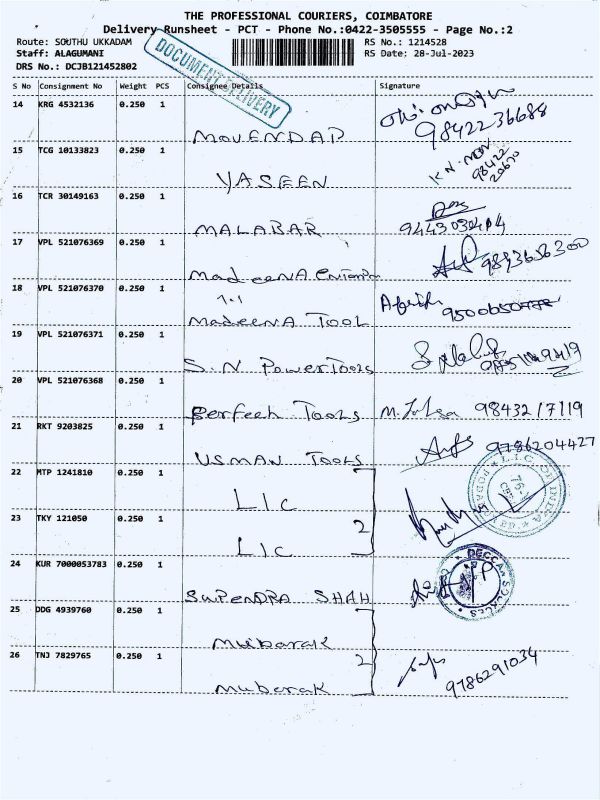 THE PROFESSIONAL COURIERS, COIMBATORE
Delivery Runsheet - PCT - Phone No.:0422-3505555 - Page No.:2
Route: SOUTHU UKKADAM RS No.: 1214528
Staff: ALAGUMANI RS Date: 28-Jul-2023
DRS No.: DCJB121452802
DOCUMENT DELIVERY
S No Consignment No Weight PCS Consignee Details Signature
14 KRG 4532136 0.250 1
MOVENDAP 9842236688
15 TCG 10133823 0.250 1
YASEEN K.N. MDN 98422
16 TCR 30149163 0.250 1
MALABAR 9443032404
17 VPL 521076369 0.250 1
MadeenA 9893656300
18 VPL 521076370 0.250 1
MadeenA TOOL
19 VPL 521076371 0.250 1
S.N PowerTools
20 VPL 521076368 0.250 1
perfech Tools 98432 17119
21 RKT 9203825 0.250 1
USMAN TOOLS 9786204427
22 MTP 1241810 0.250 1
LIC
23 TKY 121050 0.250 1 2
LIC
L.I.C. OF INDIA
24 KUR 7000053783 0.250 1
SURENDRA SHAH
25 DDG 4939760 0.250 1
mubarak
26 TNJ 7829765 0.250 1 2
mubarak 9786291034